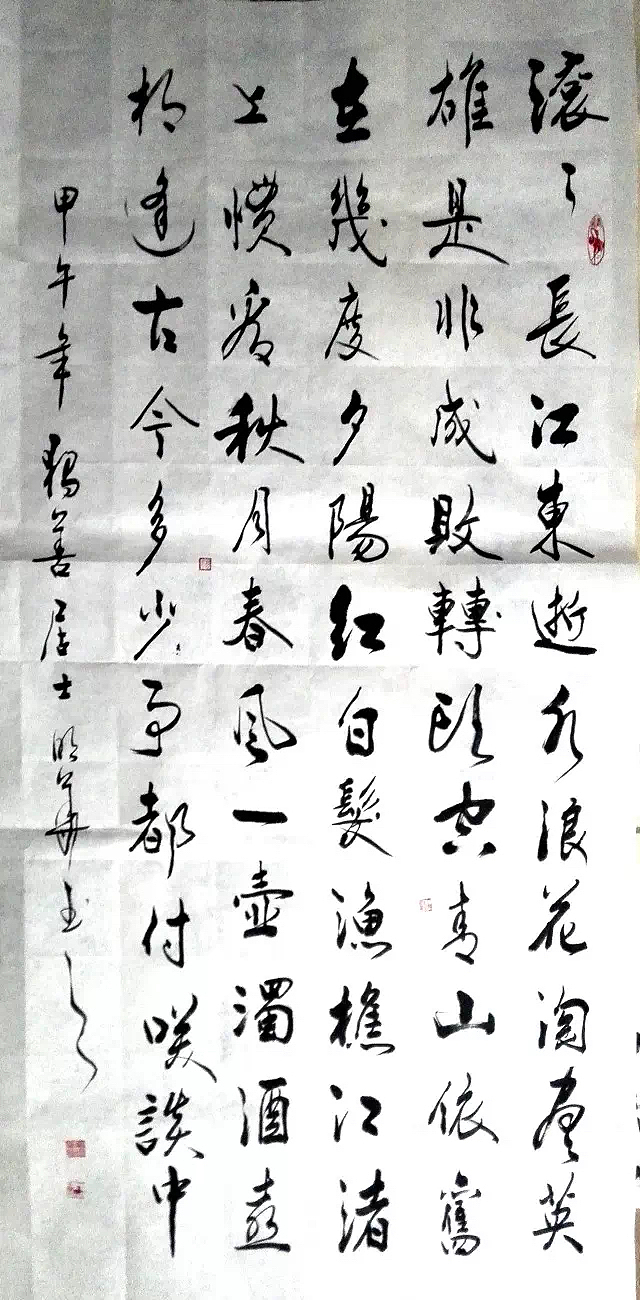 滚々長江東逝水浪花淘盡英
雄是非成敗轉頭空青山依舊
在幾度夕陽紅白髮漁樵江渚
上慣看秋月春風一壺濁酒喜
相逢古今多少事都付咲談中
甲午年獨善居士明華